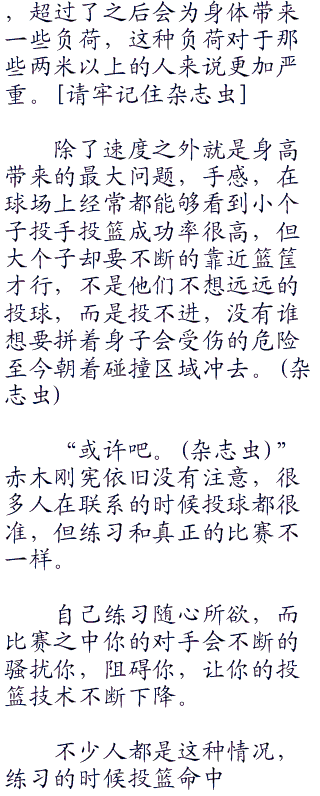 ，超过了之后会为身体带来
一些负荷，这种负荷对于那
些两米以上的人来说更加严
重。[请牢记住杂志虫]
除了速度之外就是身高
带来的最大问题，手感，在
球场上经常都能够看到小个
子投手投篮成功率很高，但
大个子却要不断的靠近篮筐
才行，不是他们不想远远的
投球，而是投不进，没有谁
想要拼着身子会受伤的危险
至今朝着碰撞区域冲去。(杂
志虫)
“或许吧。(杂志虫)”
赤木刚宪依旧没有注意，很
多人在联系的时候投球都很
准，但练习和真正的比赛不
一样。
自己练习随心所欲，而
比赛之中你的对手会不断的
骚扰你，阻碍你，让你的投
篮技术不断下降。
不少人都是这种情况，
练习的时候投篮命中